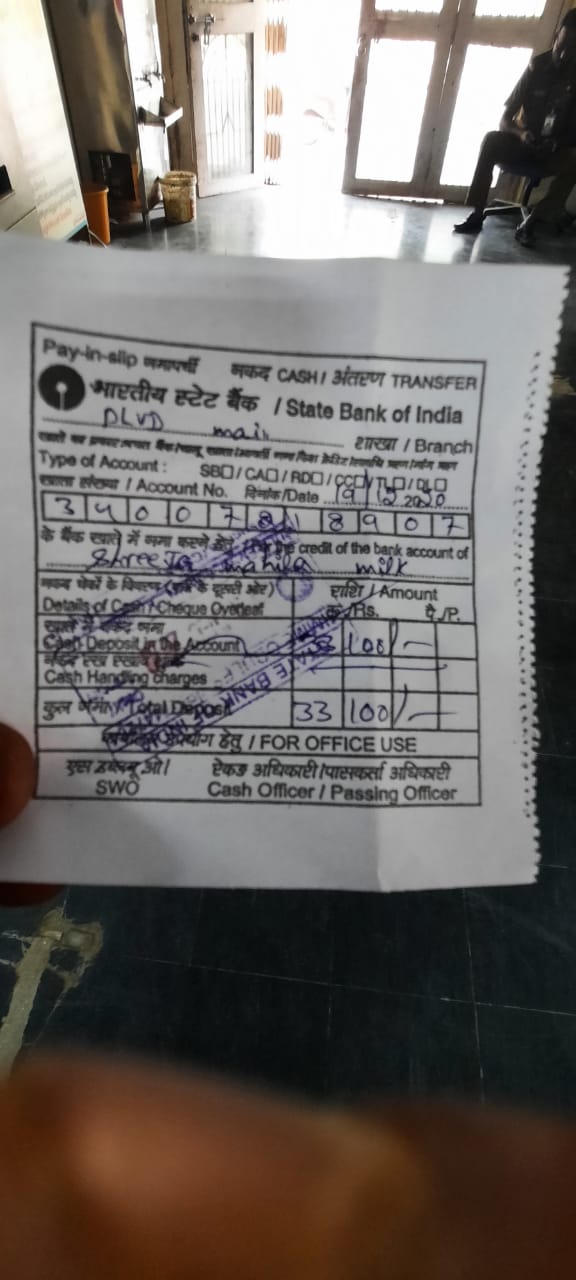 Pay-in-slip जमापर्ची नकद CASH / अंतरण TRANSFER
भारतीय स्टेट बैंक / State Bank of India
DLVD main शाखा / Branch
Type of Account : SB□ / CA□ / RD□ / CC□ / TL□ / DL□
खाता संख्या / Account No. दिनांक/Date 19/12 2020
3 4 0 0 7 8 1 8 9 0 7
के बैंक खाते में जमा करने हेतु / For the credit of the bank account of
Shreeja mahila milk
राशि / Amount
Details of Cash / Cheque Overleaf रु./Rs. पै./P.
खाते में नकद जमा
Cash Deposit in the Account 33 100/-
Cash Handling charges
कुल जमा / Total Deposit 33 100/-
कार्यालय उपयोग हेतु / FOR OFFICE USE
एस डब्ल्यू ओ/ रोकड़ अधिकारी/पासकर्ता अधिकारी
SWO Cash Officer / Passing Officer
STATE BANK OF INDIA